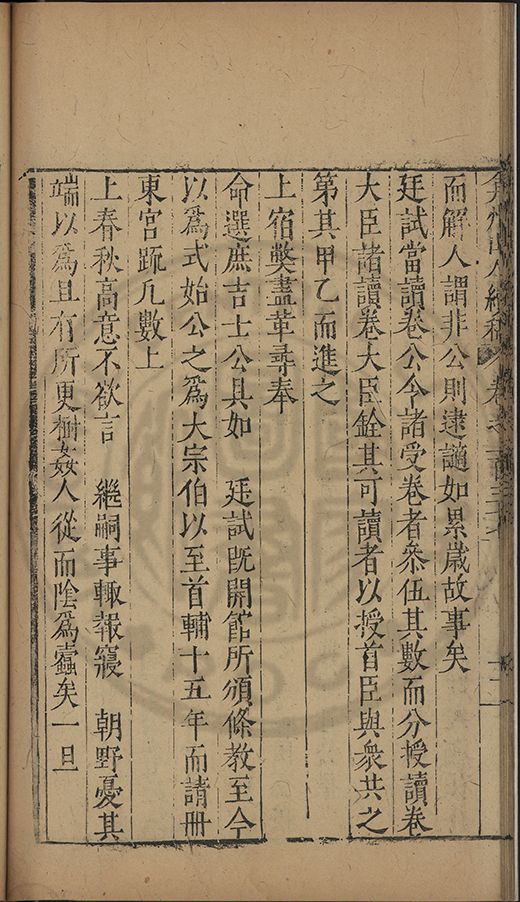 弇州山人續稿 卷之一百三十 十二
而解人謂非公則逮讁如累歲故事矣
廷試當讀卷公令諸受卷者叅伍其數而分授讀卷
大臣諸讀卷大臣銓其可讀者以授首臣與衆共之
第其甲乙而進之
上宿獘盡革尋奉
命選庶吉士公具如 廷試旣開館所頒條教至今
以爲式始公之爲大宗伯以至首輔十五年而請册
東宮䟽凡數上
上春秋高意不欲言 繼嗣事輙報寢 朝野憂其
端以爲且有所更樹姦人從而陰爲蠹矣一旦